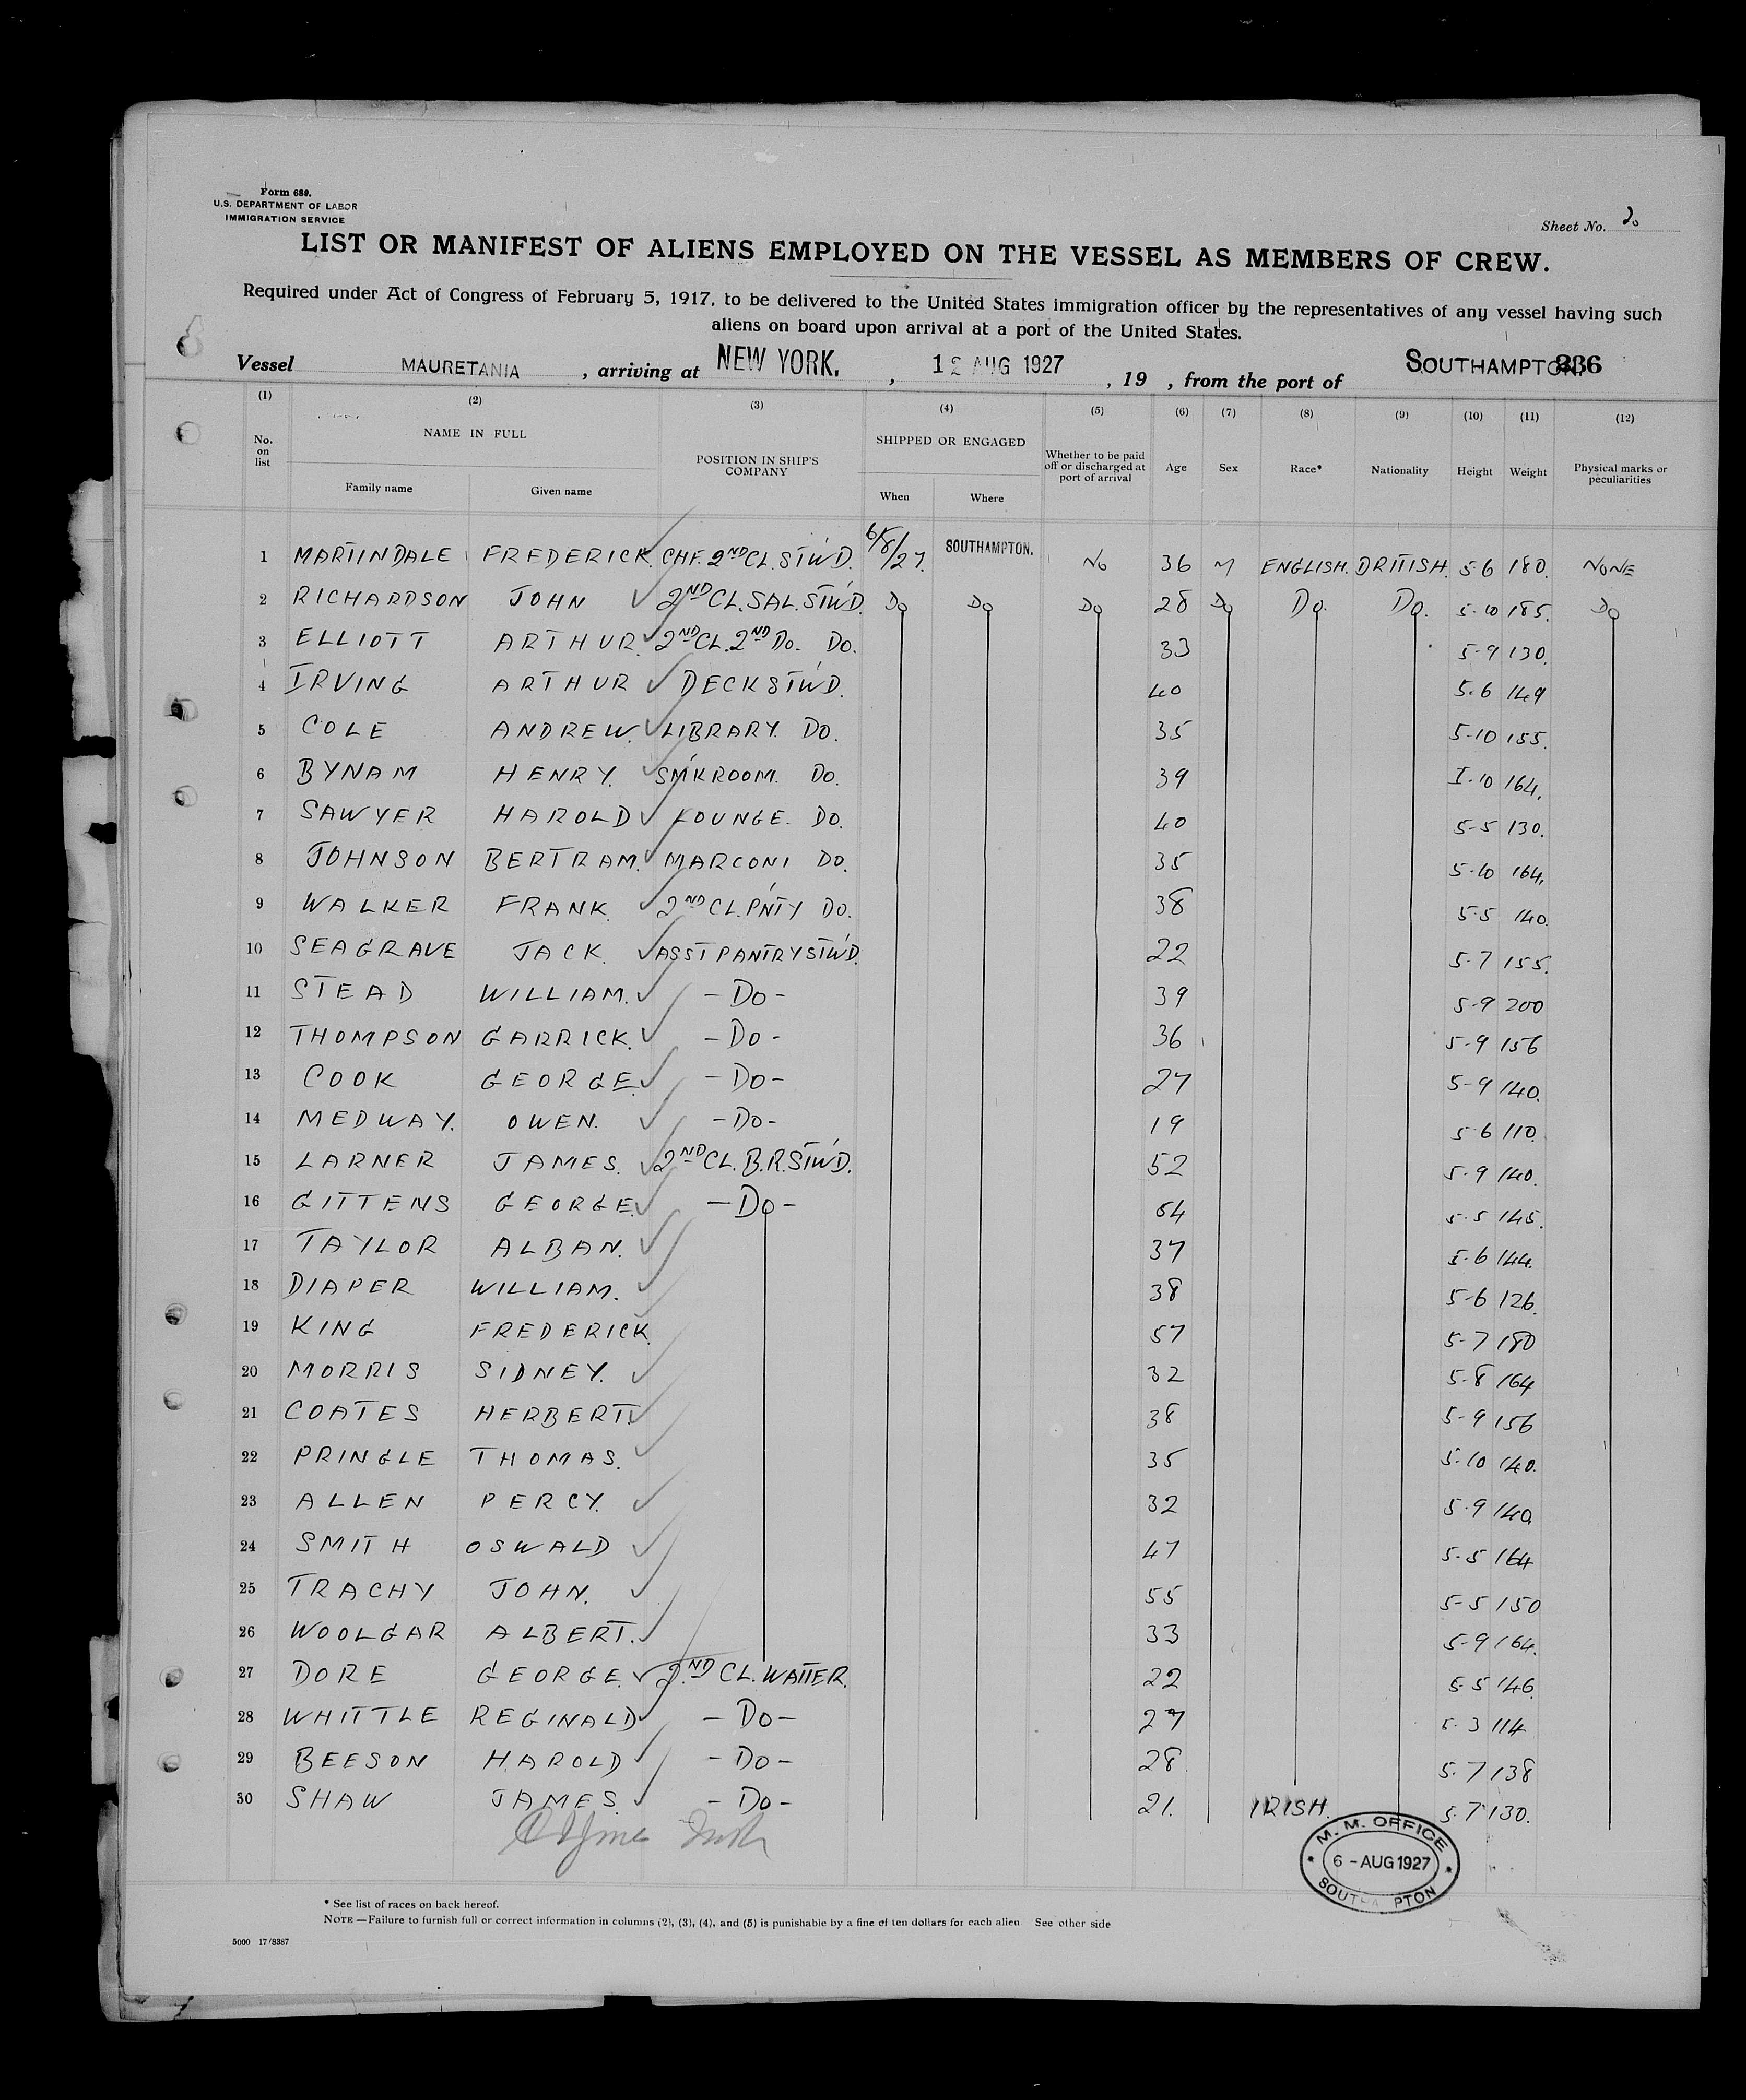 Form 689.
U.S. DEPARTMENT OF LABOR
IMMIGRATION SERVICE
Sheet No. 20
LIST OR MANIFEST OF ALIENS EMPLOYED ON THE VESSEL AS MEMBERS OF CREW.
Required under Act of Congress of February 5, 1917, to be delivered to the United States immigration officer by the representatives of any vessel having such
aliens on board upon arrival at a port of the United States.
Vessel MAURETANIA, arriving at NEW YORK., 12 AUG 1927, 19 , from the port of SOUTHAMPTON. 336
(1) (2) (3) (4) (5) (6) (7) (8) (9) (10) (11) (12)
No. on list NAME IN FULL POSITION IN SHIP'S COMPANY SHIPPED OR ENGAGED Whether to be paid off or discharged at port of arrival Age Sex Race* Nationality Height Weight Physical marks or peculiarities
Family name Given name When Where
1 MARTINDALE FREDERICK. CHF. 2ND CL. STW'D. 6/8/27. SOUTHAMPTON. NO 36 M ENGLISH. BRITISH. 5.6 180. NONE
2 RICHARDSON JOHN 2ND CL. SAL. STW'D. DO DO DO 28 DO DO. DO. 5-10 185. DO
3 ELLIOTT ARTHUR. 2ND CL. 2ND DO. DO. 33 5-9 130.
4 IRVING ARTHUR DECK STW'D. 40 5.6 149
5 COLE ANDREW. LIBRARY. DO. 35 5-10 155.
6 BYNAM HENRY. SMKROOM. DO. 39 5-10 164.
7 SAWYER HAROLD LOUNGE. DO. 40 5-5 130.
8 JOHNSON BERTRAM. MARCONI DO. 35 5-10 164.
9 WALKER FRANK. 2ND CL. PN'TY DO. 38 5.5 140.
10 SEAGRAVE JACK. ASST PANTRY STW'D. 22 5-7 155.
11 STEAD WILLIAM. - DO - 39 5-9 200
12 THOMPSON GARRICK. - DO - 36 5-9 156
13 COOK GEORGE. - DO - 27 5-9 140.
14 MEDWAY. OWEN. - DO - 19 5-6 110.
15 LARNER JAMES. 2ND CL. B.R. STW'D. 52 5-9 140.
16 GITTENS GEORGE. - DO - 54 5.5 145.
17 TAYLOR ALBAN. 37 5-6 144.
18 DIAPER WILLIAM. 38 5-6 126.
19 KING FREDERICK. 57 5-7 180
20 MORRIS SIDNEY. 32 5.8 164
21 COATES HERBERT. 38 5-9 156
22 PRINGLE THOMAS. 35 5-10 140.
23 ALLEN PERCY. 32 5.9 140.
24 SMITH OSWALD 47 5.5 164
25 TRACHY JOHN. 55 5-5 150
26 WOOLGAR ALBERT. 33 5-9 164.
27 DORE GEORGE. 2ND CL. WAITER. 22 5-5 146.
28 WHITTLE REGINALD - DO - 27 5.3 114
29 BEESON HAROLD - DO - 28. 5.7 138
30 SHAW JAMES. - DO - 21. IRISH. 5.7 130.
M. M. OFFICE
6 - AUG 1927
SOUTHAMPTON
* See list of races on back hereof.
NOTE —Failure to furnish full or correct information in columns (2), (3), (4), and (5) is punishable by a fine of ten dollars for each alien. See other side
5000 17/8387